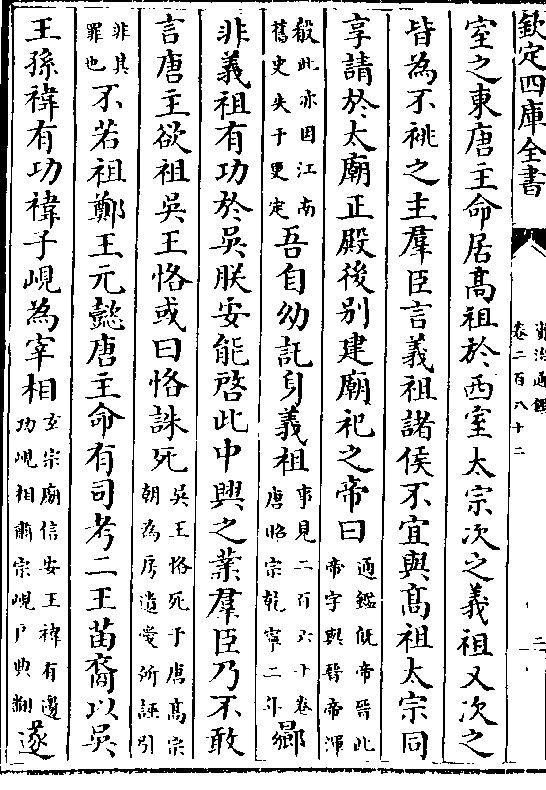 欽定四庫全書
卷二百八十二
二
室之東唐主命居髙祖於西室太宗次之義祖又次之
皆為不祧之主羣臣言義祖諸侯不宜與髙祖太宗同
享請於太廟正殿後别建廟祀之帝曰通鑑既帝晉此帝字與晉帝渾
殽此亦因江南舊史失于更定吾自幼託身義祖事見二百六十卷唐昭宗乾寧二年曏
非義祖有功於吳朕安能啓此中興之業羣臣乃不敢
言唐主欲祖吳王恪或曰恪誅死吳王恪死于唐髙宗朝為房遺愛所誣引
非其罪也不若祖鄭王元懿唐主命有司考二王苗裔以吳
王孫禕有功禕子峴為宰相玄宗廟信安王禕有邊功峴相肅宗峴戸典翻遂